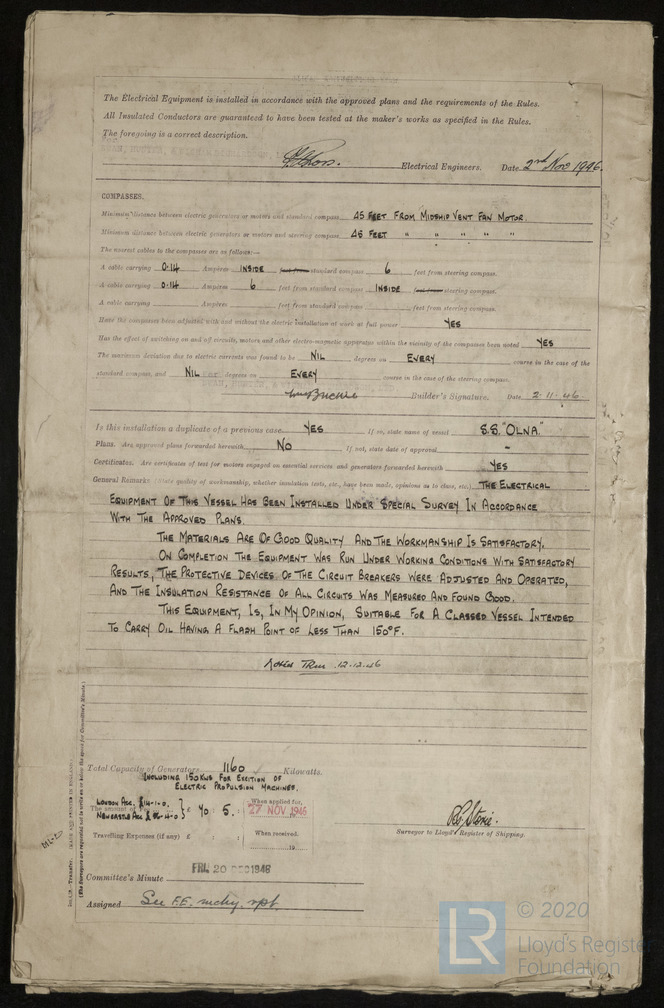 The Electrical Equipment is installed in accordance with the approved plans and the requirements of the Rules.
All Insulated Conductors are guaranteed to have been tested at the maker's works as specified in the Rules.
The foregoing is a correct description.
Electrical Engineers. Date 2nd Nov 1946.
COMPASSES.
Minimum distance between electric generators or motors and standard compass 45 FEET FROM MIDSHIP VENT FAN MOTOR.
Minimum distance between electric generators or motors and steering compass 45 FEET " " " " "
The nearest cables to the compasses are as follows:—
A cable carrying 0.14 Ampères INSIDE feet from standard compass 6 feet from steering compass.
A cable carrying 0.14 Ampères 6 feet from standard compass INSIDE feet from steering compass.
A cable carrying Ampères feet from standard compass feet from steering compass.
Have the compasses been adjusted with and without the electric installation at work at full power YES
Has the effect of switching on and off circuits, motors and other electro-magnetic apparatus within the vicinity of the compasses been noted YES
The maximum deviation due to electric currents was found to be NIL degrees on EVERY course in the case of the
standard compass, and NIL degrees on EVERY course in the case of the steering compass.
Builder's Signature. Date 2-11-46
Is this installation a duplicate of a previous case YES If so, state name of vessel S.S. "OLNA."
Plans. Are approved plans forwarded herewith No If not, state date of approval -
Certificates. Are certificates of test for motors engaged on essential services and generators forwarded herewith YES
General Remarks (State quality of workmanship, whether insulation tests, etc., have been made, opinions as to class, etc.) THE ELECTRICAL
EQUIPMENT OF THIS VESSEL HAS BEEN INSTALLED UNDER SPECIAL SURVEY IN ACCORDANCE
WITH THE APPROVED PLANS.
THE MATERIALS ARE OF GOOD QUALITY AND THE WORKMANSHIP IS SATISFACTORY.
ON COMPLETION THE EQUIPMENT WAS RUN UNDER WORKING CONDITIONS WITH SATISFACTORY
RESULTS, THE PROTECTIVE DEVICES OF THE CIRCUIT BREAKERS WERE ADJUSTED AND OPERATED,
AND THE INSULATION RESISTANCE OF ALL CIRCUITS WAS MEASURED AND FOUND GOOD.
THIS EQUIPMENT, IS, IN MY OPINION, SUITABLE FOR A CLASSED VESSEL INTENDED
TO CARRY OIL HAVING A FLASH POINT OF LESS THAN 150°F.
Noted 12-12-46
Total Capacity of Generators 1160 Kilowatts.
INCLUDING 150KWS FOR EXCITION OF
ELECTRIC PROPULSION MACHINES.
LONDON ACC. £14-1-0. } £ 70 : 5 : When applied for,
NEWCASTLE ACC £56-4-0 27 NOV 1946
Travelling Expenses (if any) £ : : When received.
19
Surveyor to Lloyd's Register of Shipping.
Committee's Minute FRI. 20 DEC 1946
Assigned See F.E. mchy. rpt.
LR © 2020
Lloyd's Register
Foundation